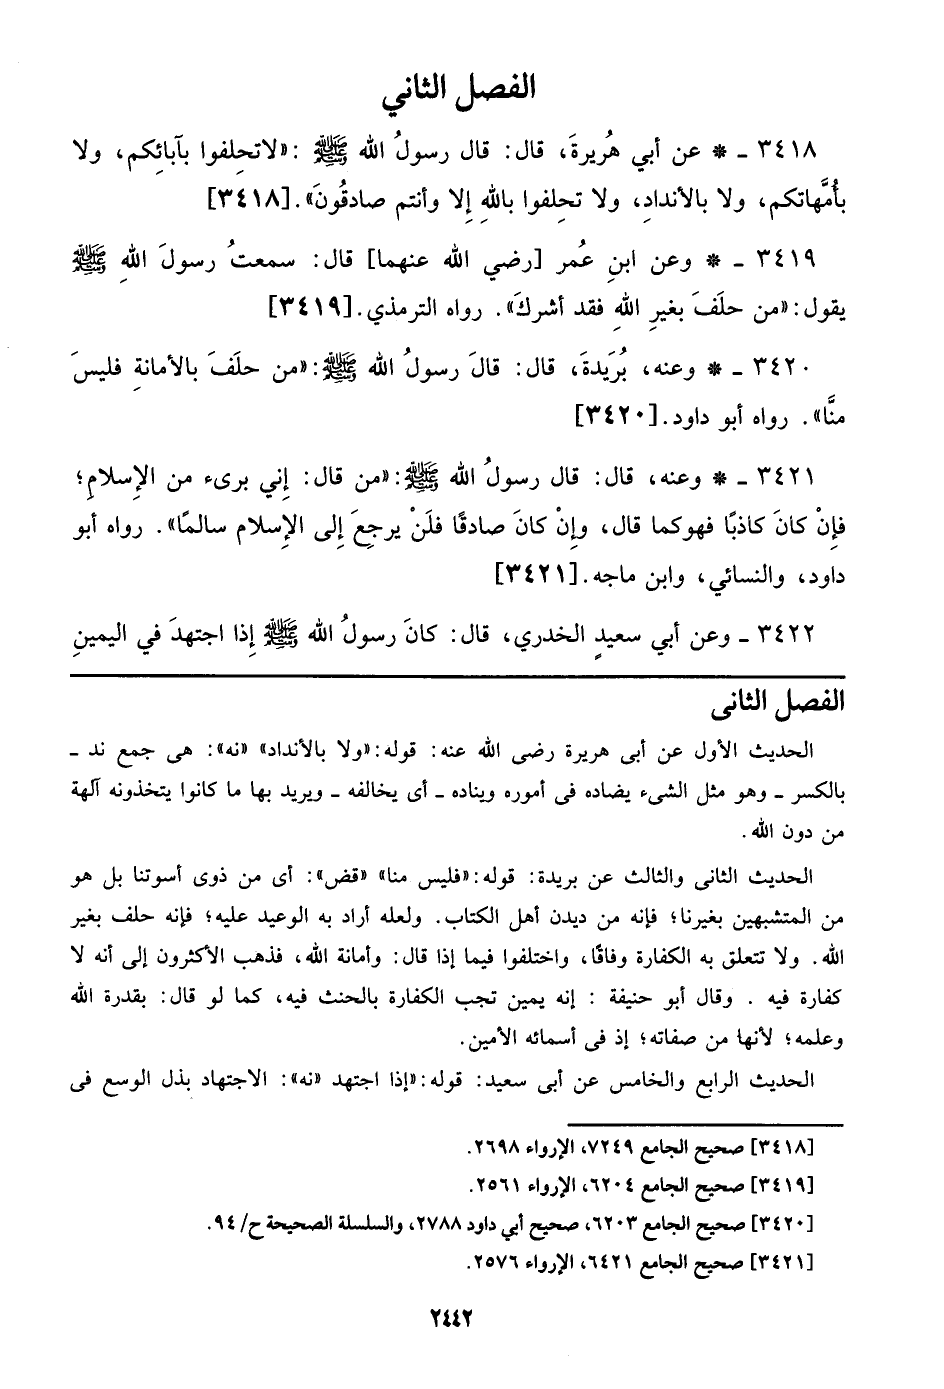 الفصل الثاني
٣٤١٨ ـ * عن أبي هُريرةَ، قال: قال رسولُ الله ﷺ :«لاتحلِفوا بآبائِكم، ولا
بأُمَّهاتكم، ولا بالأندادِ، ولا تحلِفوا باللهِ إِلا وأنتم صادقُونَ». [٣٤١٨]
٣٤١٩ ـ * وعن ابنِ عُمر [رضي الله عنهما] قال: سمعتُ رسولَ اللهِ ﷺ
يقول:«من حلَفَ بغيرِ اللهِ فقد أشركَ». رواه الترمذي. [٣٤١٩]
٣٤٢٠ ـ * وعنه، بُرَيدةَ، قال: قالَ رسولُ الله ﷺ:«من حلَفَ بالأمانةِ فليسَ
منَّا». رواه أبو داود. [٣٤٢٠]
٣٤٢١ ـ * وعنه، قال: قال رسولُ الله ﷺ:«من قال: إِني برىء من الإِسلامِ؛
فإِنْ كانَ كاذبًا فهوكما قال، وإِنْ كانَ صادقًا فلَنْ يرجعَ إِلى الإِسلام سالمًا». رواه أبو
داود، والنسائي، وابن ماجه. [٣٤٢١]
٣٤٢٢ ـ وعن أبي سعيدٍ الخدري، قال: كانَ رسولُ الله ﷺ إِذا اجتهدَ في اليمينِ
الفصل الثانى
الحديث الأول عن أبى هريرة رضى الله عنه: قوله:«ولا بالأنداد» «نه»: هى جمع ند ـ
بالكسر ـ وهو مثل الشىء يضاده فى أموره ويناده ـ أى يخالفه ـ ويريد بها ما كانوا يتخذونه آلهة
من دون الله.
الحديث الثانى والثالث عن بريدة: قوله:«فليس منا» «قض»: أى من ذوى أسوتنا بل هو
من المتشبهين بغيرنا؛ فإنه من ديدن أهل الكتاب. ولعله أراد به الوعيد عليه؛ فإنه حلف بغير
الله. ولا تتعلق به الكفارة وفاقًا، واختلفوا فيما إذا قال: وأمانة الله، فذهب الأكثرون إلى أنه لا
كفارة فيه . وقال أبو حنيفة : إنه يمين تجب الكفارة بالحنث فيه، كما لو قال: بقدرة الله
وعلمه؛ لأنها من صفاته؛ إذ فى أسمائه الأمين.
الحديث الرابع والخامس عن أبى سعيد: قوله:«إذا اجتهد «نه»: الاجتهاد بذل الوسع فى
[٣٤١٨] صحيح الجامع ٧٢٤٩، الإرواء ٢٦٩٨.
[٣٤١٩] صحيح الجامع ٦٢٠٤، الإرواء ٢٥٦١.
[٣٤٢٠] صحيح الجامع ٦٢٠٣، صحيح أبي داود ٢٧٨٨، والسلسلة الصحيحة ح/ ٩٤.
[٣٤٢١] صحيح الجامع ٦٤٢١، الإرواء ٢٥٧٦.
٢٤٤٢